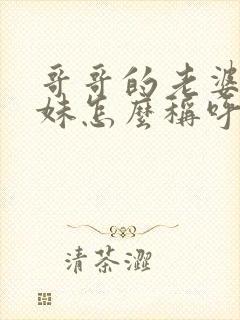 哥哥的老婆
妹怎麼稱呼
清茶澀